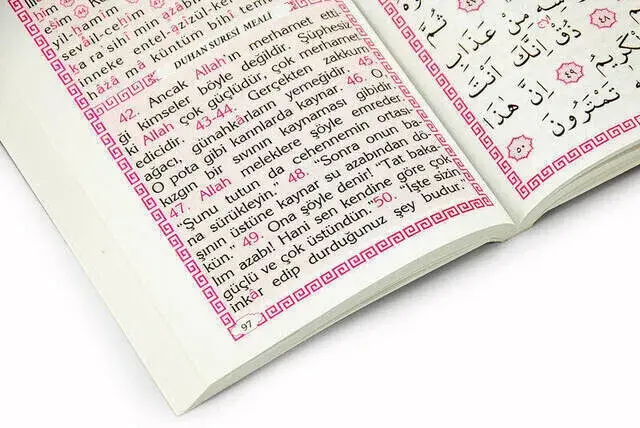 yil-hamîm
sevâil-cehîm
inneke entel-azîzül-k
hâzâ mâ küntüm bihî tem
DUHAN SURESİ MEALİ
42. Ancak Allah'ın merhamet etti
ği kimseler böyle değildir. Şüphesiz
ki Allah çok güçlüdür, çok merhamet
edicidir. 43-44. Gerçekten zakkum
ağacı, günahkâların yemeğidir. 45
O pota gibi karınlarda kaynar. 46. O
kızgın bir sıvının kaynaması gibidir.
47. Allah meleklere şöyle emreder,
"Şunu tutun da cehennemin ortası-
na sürükleyin." 48. "Sonra onun ba-
şının üstüne kaynar su azabından dö-
kün." 49. Ona şöyle denir! "Tat baka-
lım azabı! Hani sen kendine göre çok
güçlü ve çok üstündün." 50. "İşte sizin
inkâr edip durduğunuz şey budur."
97
مِنْ عَذَابِ
٤٨ ذُقْ إِنَّكَ أَنْتَ
الْكَرِيمُ ٤٩ إِنَّ هَٰذَا
تَمْتَرُونَ ٥٠